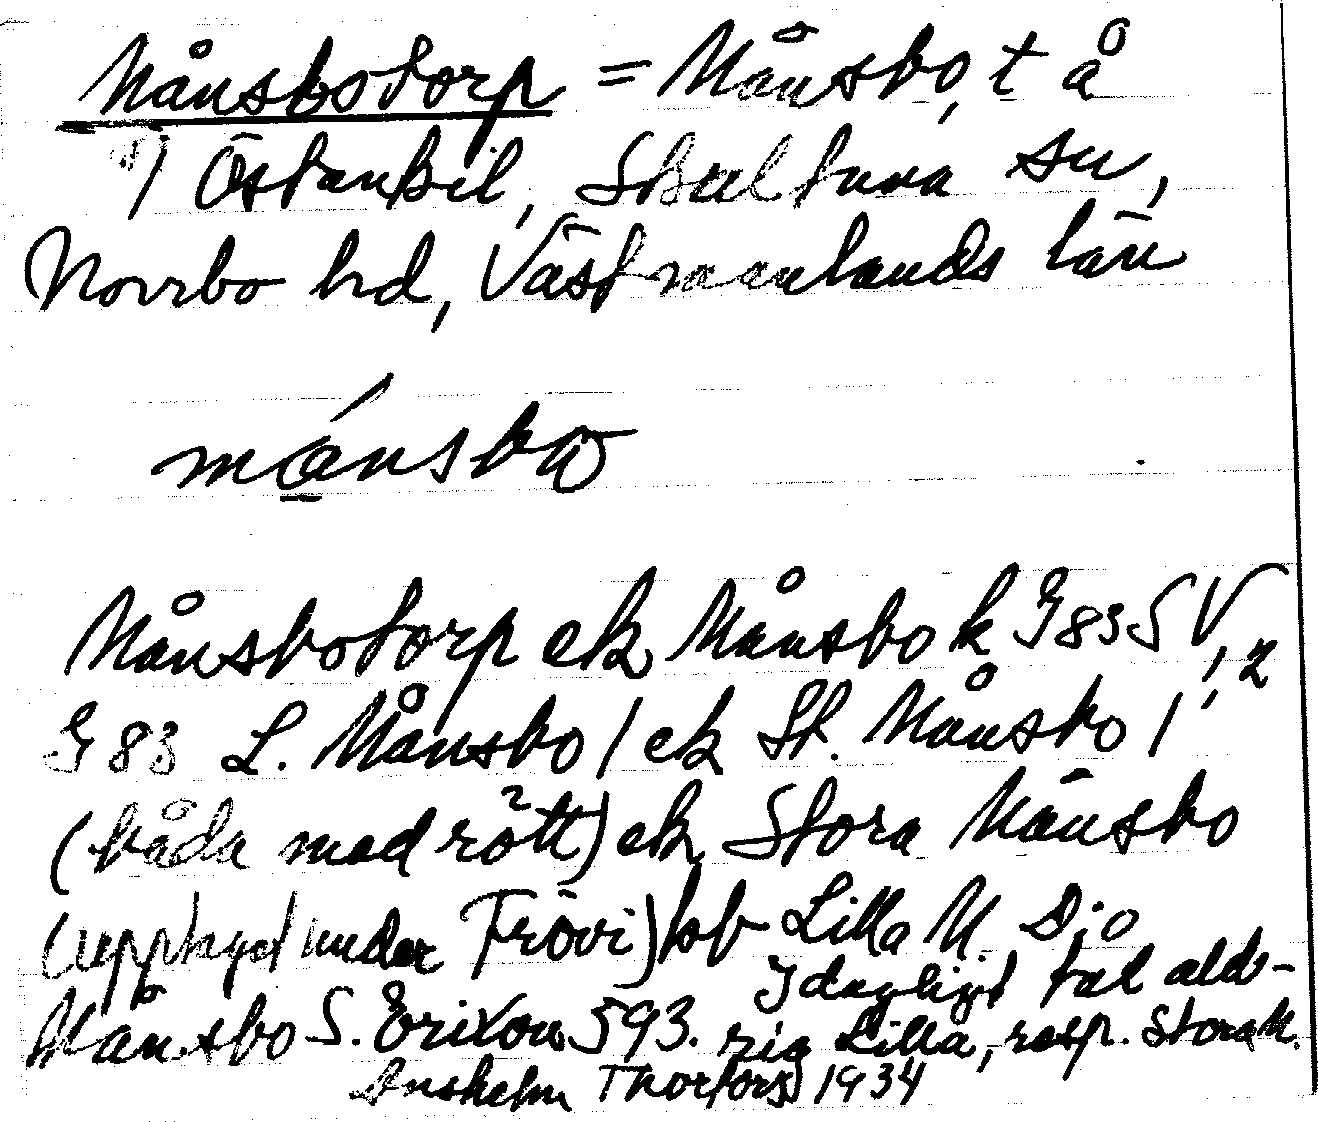 Månsbotorp = Månsbo, t å
1) Östanbil, Skultuna sn,
Norrbo hd, Västmanlands län
månsbo
Månsbotorp ek Månsbo k G 83 SV,
G 83 L. Månsbo / ek St. Månsbo /,
(båda med rött) ek Stora Månsbo
(upptaget under Frövi) Lilla M. D:o
Månsbo S. Erixon 593. I dagligt tal ald-
rig Lilla, resp. Stora M.
Anshelm Thorfors 1934